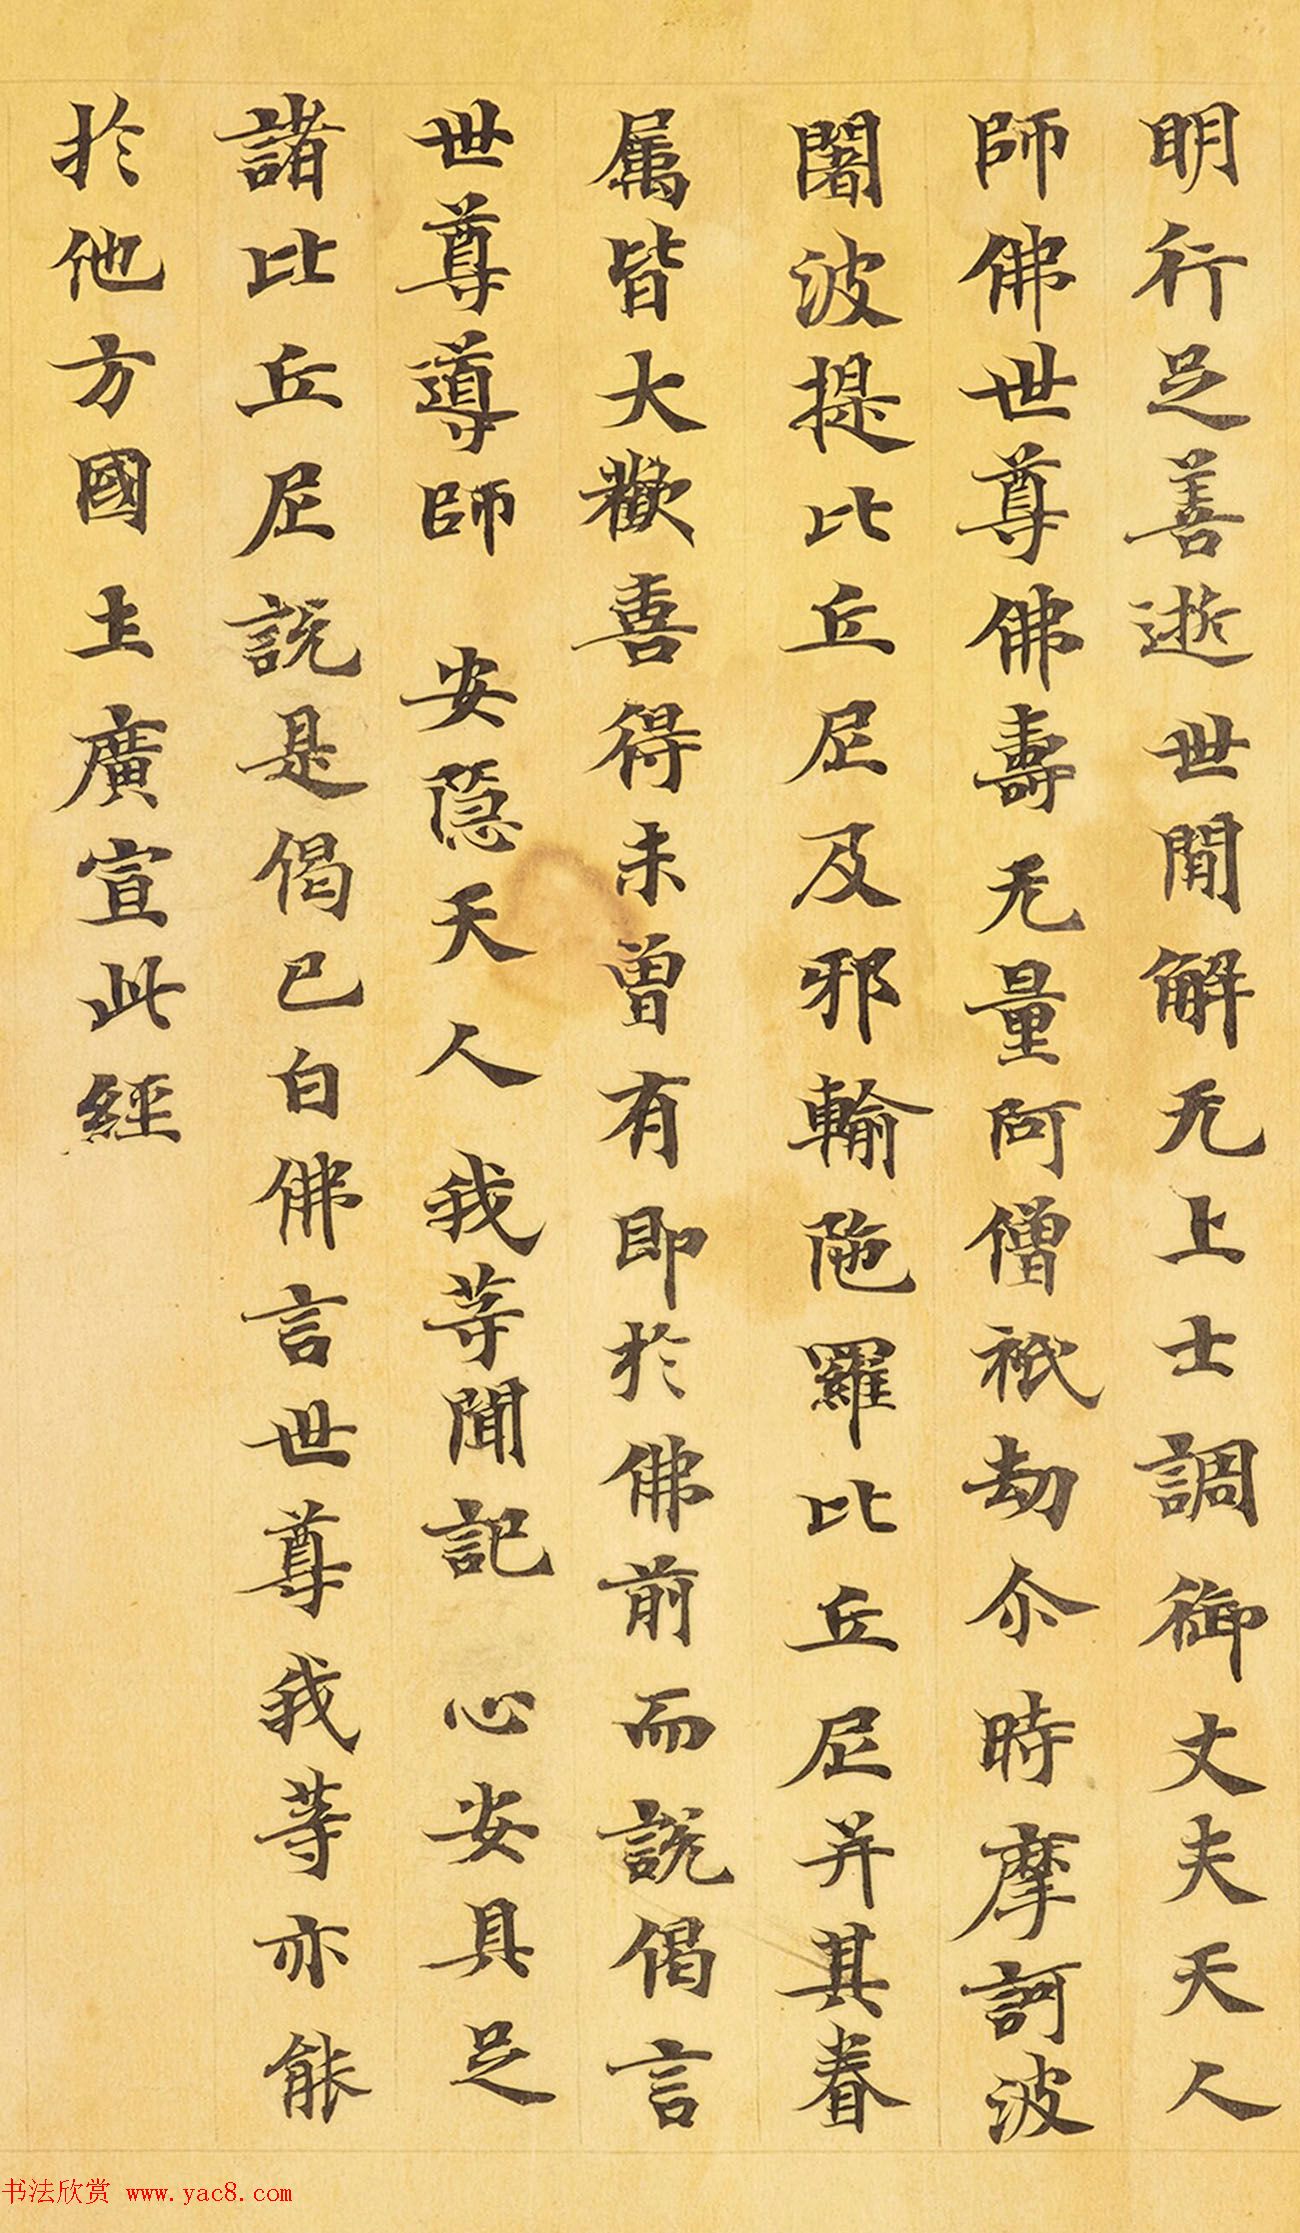 明行足善逝世間解无上士調御丈夫天人
師佛世尊佛壽无量阿僧祇劫尒時摩訶波
闍波提比丘尼及邪輸陁羅比丘尼并其眷
属皆大歡喜得未曽有即於佛前而說偈言
世尊導師 安隱天人 我等聞記 心安具足
諸比丘尼說是偈已白佛言世尊我等亦能
於他方國土廣宣此經
书法欣赏 www.yac8.com